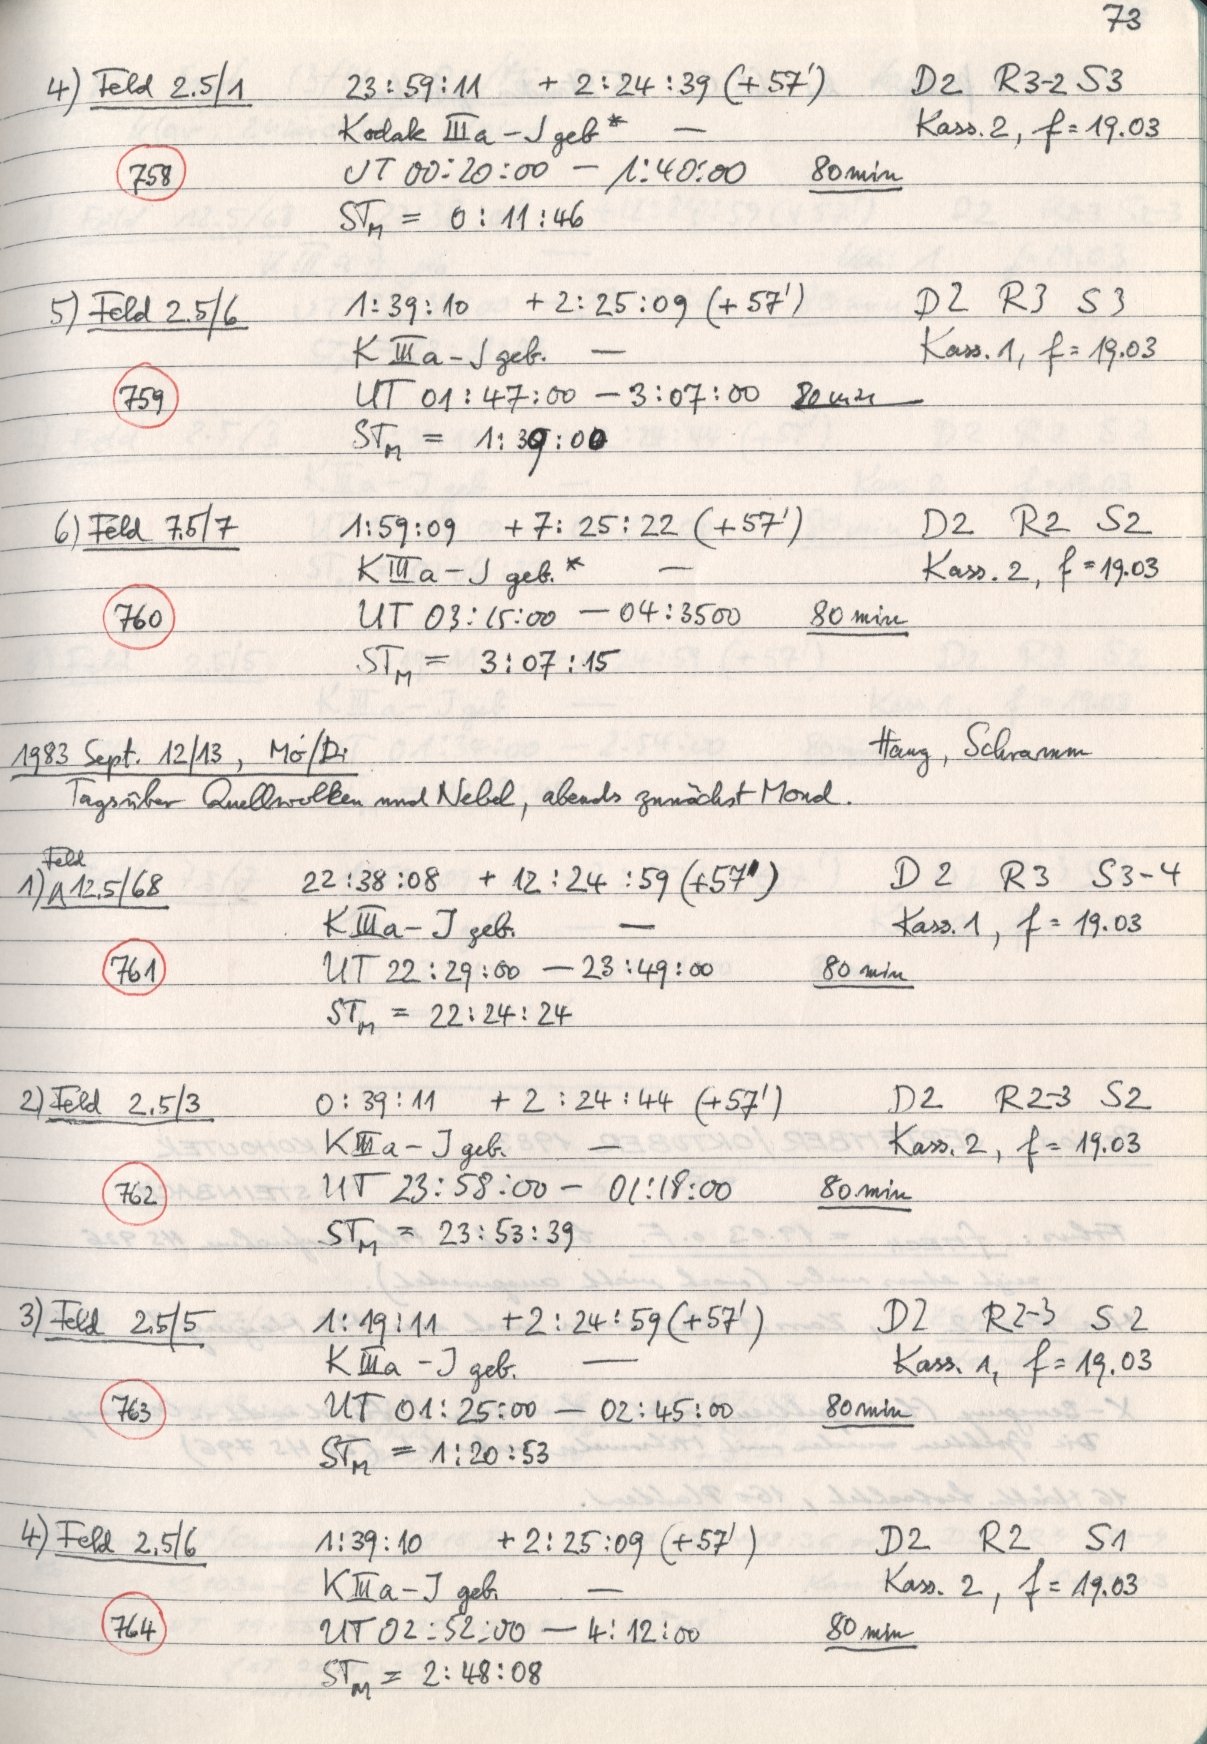 73
4) Feld 2.5/1 23:59:11 + 2:24:39 (+57') D2 R3-2 S3
Kodak IIIa-J geb* — Kass. 2, f = 19.03
758 UT 00:20:00 — 1:40:00 80 min
STM = 0:11:46
5) Feld 2.5/6 1:39:10 + 2:25:09 (+57') D2 R3 S3
K IIIa-J geb. — Kass. 1, f = 19.03
759 UT 01:47:00 — 3:07:00 80 min
STM = 1:39:00
6) Feld 7.5/7 1:59:09 + 7:25:22 (+57') D2 R2 S2
K IIIa-J geb.* — Kass. 2, f = 19.03
760 UT 03:15:00 — 04:3500 80 min
STM = 3:07:15
1983 Sept. 12/13, Mo/Di Haug, Schramm
Tagsüber Quellwolken und Nebel, abends zunächst Mond.
Feld
1) 12.5/68 22:38:08 + 12:24:59 (+57') D2 R3 S3-4
K IIIa-J geb. — Kass. 1, f = 19.03
761 UT 22:29:00 — 23:49:00 80 min
STM = 22:24:24
2) Feld 2.5/3 0:39:11 + 2:24:44 (+57') D2 R2-3 S2
K IIIa-J geb. — Kass. 2, f = 19.03
762 UT 23:58:00 — 01:18:00 80 min
STM = 23:53:39
3) Feld 2.5/5 1:19:11 + 2:24:59 (+57') D2 R2-3 S2
K IIIa-J geb. — Kass. 1, f = 19.03
763 UT 01:25:00 — 02:45:00 80 min
STM = 1:20:53
4) Feld 2.5/6 1:39:10 + 2:25:09 (+57') D2 R2 S1
K IIIa-J geb. — Kass. 2, f = 19.03
764 UT 02:52:00 — 4:12:00 80 min
STM = 2:48:08